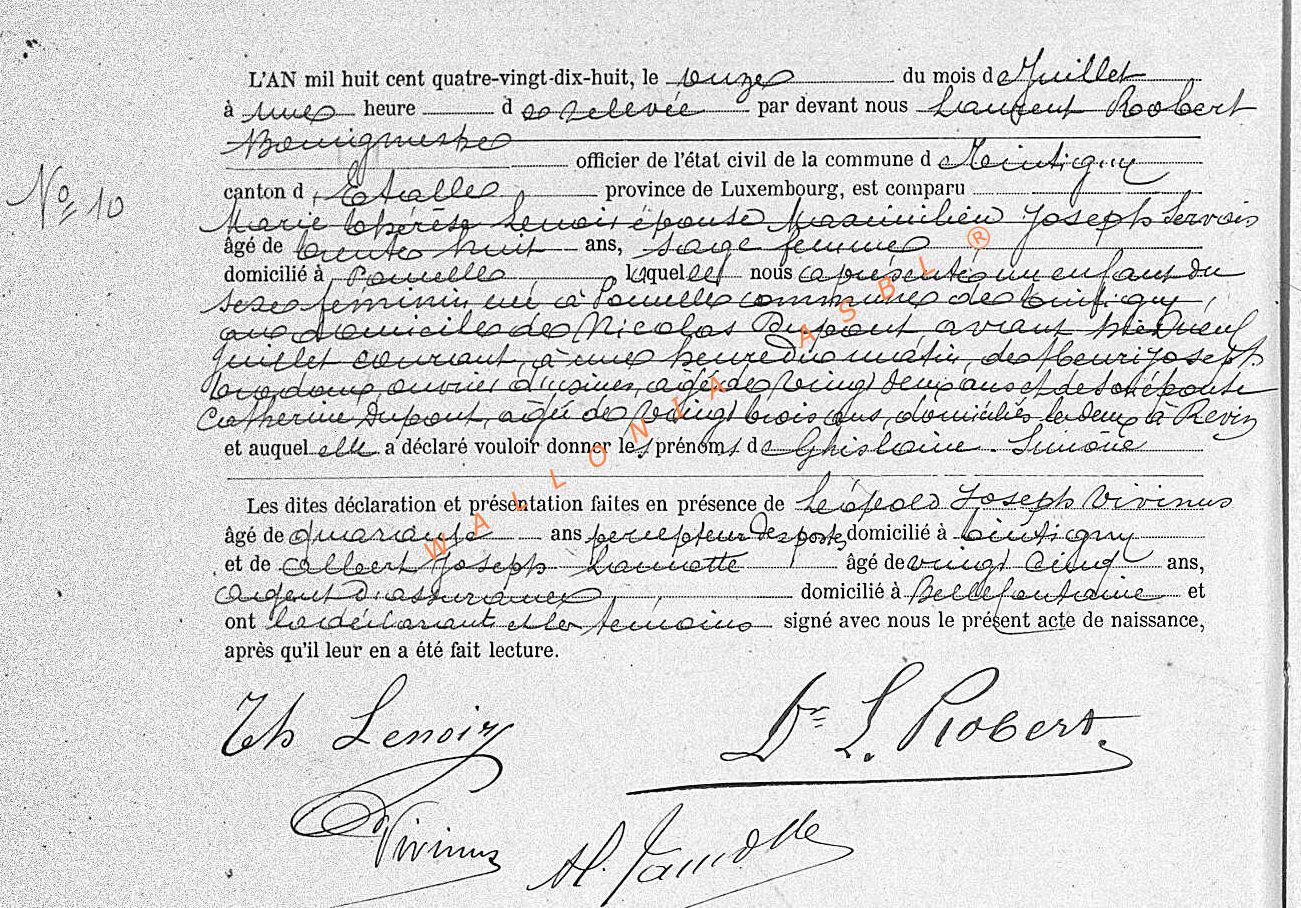 L'AN mil huit cent quatre-vingt-dix-huit, le onze du mois de Juillet
à une heure de relevée par devant nous Laurent Robert
Bourgmestre
officier de l'état civil de la commune de Tintigny
No 10
canton d'Etalle province de Luxembourg, est comparu
Marie Thérèse Lenoir épouse Maximilien Joseph Servais
âgé de trente huit ans, sage femme
domicilié à Pouvelle, laquelle nous a présenté un enfant du
sexe feminin né à Pouvelle commune de Tintigny,
au domicile de Nicolas Dupont avant hier neuf
Juillet courant, à une heure du matin, de Henri Joseph
ouvrier d'usines, agé de vingt deux ans et de son épouse
Catherine Dupont, agée de vingt trois ans, domiciliés les deux à Revin
et auquel elle a déclaré vouloir donner les prénoms de Ghislaine Simone
Les dites déclaration et présentation faites en présence de Léopold Joseph Vivinus
âgé de quarante ans percepteur des postes, domicilié à Tintigny
et de Albert Joseph Lamotte âgé de vingt cinq ans,
agent d'assurances, domicilié à Bellefontaine et
ont la déclarante et les témoins signé avec nous le présent acte de naissance,
après qu'il leur en a été fait lecture.
Th Lenoir
Dr L. Robert.
Vivinus
WALLONIA ASBL ®